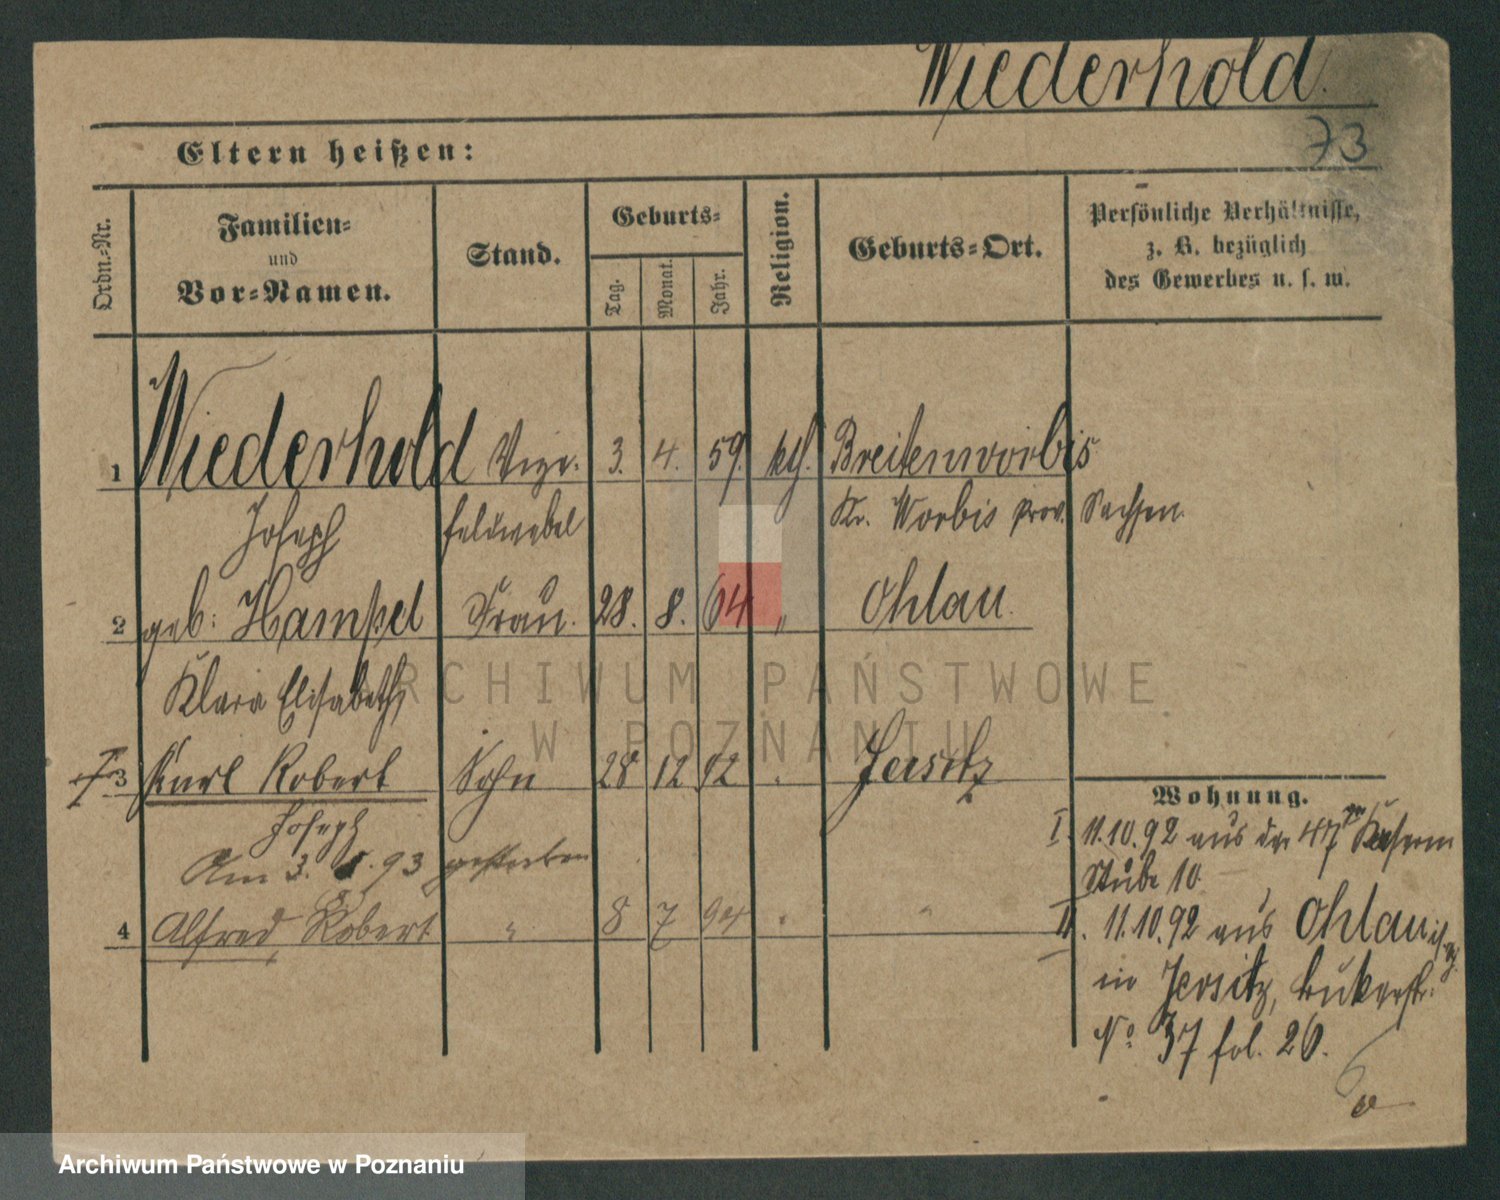 Wiederhold.
73
Eltern heißen:
Ordn.-Nr.
Familien-
und
Vor-Namen.
Stand.
Geburts-
Tag.
Monat.
Jahr.
Religion.
Geburts-Ort.
Persönliche Verhältnisse,
z. B. bezüglich
des Gewerbes u. s. w.
1 Wiederhold Vize- 3. 4. 59. kth. Breitenworbis
Joseph feldwebel Kr. Worbis Prov. Sachsen.
2 geb: Hampel Frau. 28. 8. 64 " Ohlau.
Klara Elisabeth
3 Karl Robert Sohn 28 12 92 Jersitz
Joseph
Am 3. 93 gestorben
4 Alfred Robert " 8 7 94 "
Wohnung.
I. 11.10.92 aus der 47er Kaserne
Stube 10
II. 11.10.92 aus Ohlau
in Jersitz,
No. 37 fol. 26.
ARCHIWUM PAŃSTWOWE
W POZNANIU
Archiwum Państwowe w Poznaniu